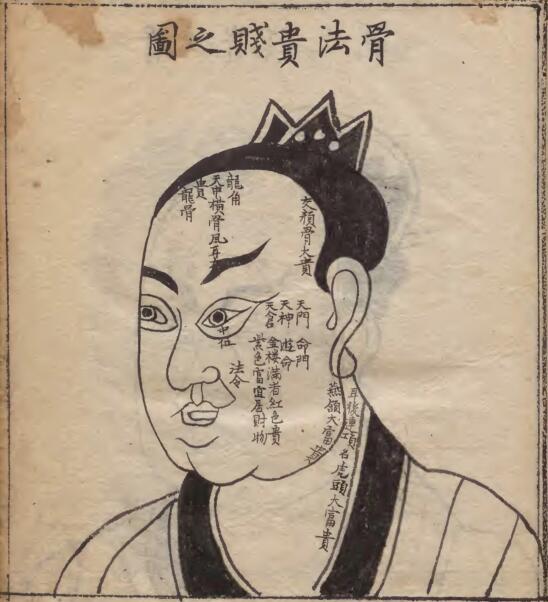 骨法貴賤之圖
龍角
天中橫骨鳳耳
貴
龍骨
天額骨大貴
天門 命門
天神 遊命
天倉 金楼滿者紅色貴
紫色富宜居財物
中位
法令
耳後連項名虎頭大富貴
燕頷大富貴